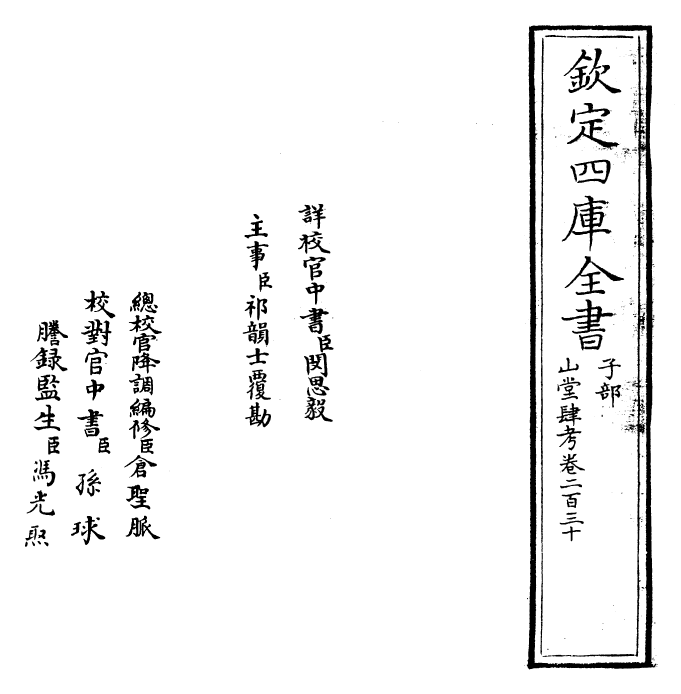 欽定四庫全書
子部
山堂肆考卷二百三十
詳校官中書臣閔思毅
主事臣祁韻士覆勘
總校官降調編修臣倉聖脈
校對官中書臣孫球
謄錄監生臣馮光熙